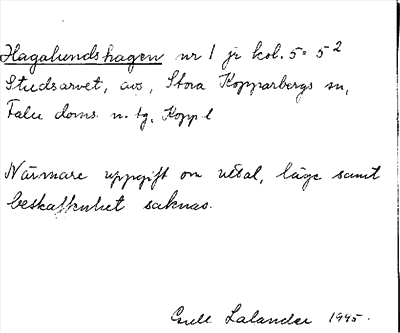 Hagalundshagen nr 1 jr kol. 5 = 5²
Studsarvet, avs, Stora Kopparbergs sn,
Falu doms. n. tg. Kopp l
Närmare uppgift om uttal, läge samt
beskaffenhet saknas.
Gull Lalander 1945.